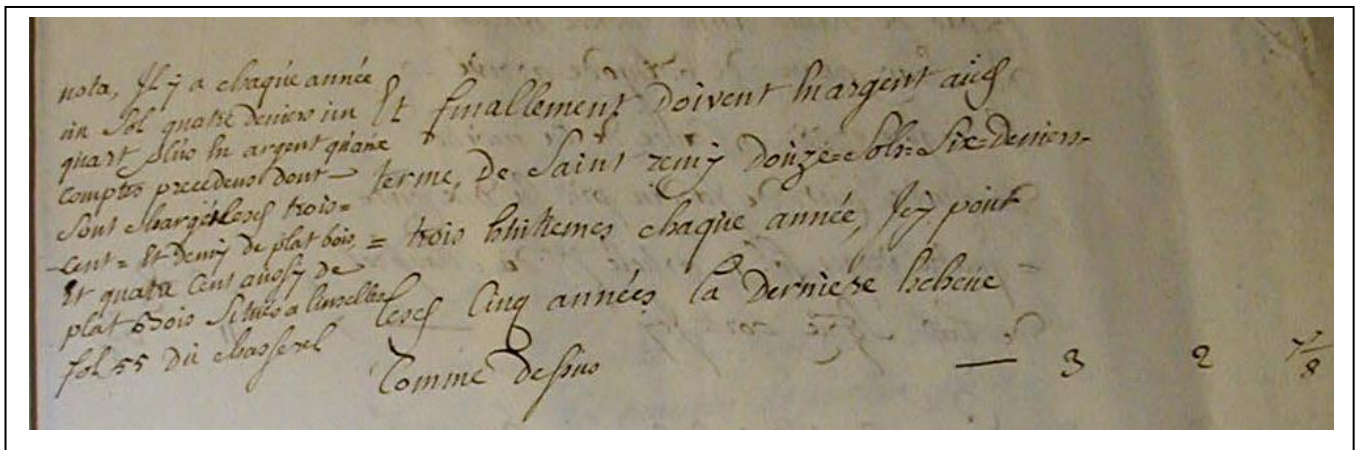 nota, Il y a chaque année
un sol quatre deniers un
quart plus en argent qu'aux
comptes precedens dont
sont chargé lesd trois=
cent = et demy de plat bois,
Et quatre cent aussy de
plat Bois situés a linselles
fol 55 du chasserel
Et finallement doivent en argent aud
terme, de saint remy douze=sols=six=deniers=
= trois huittiemes chaque année, Icy pour
lesd Cinq années la derniere escheüe
Comme dessus — 3 2 7/8